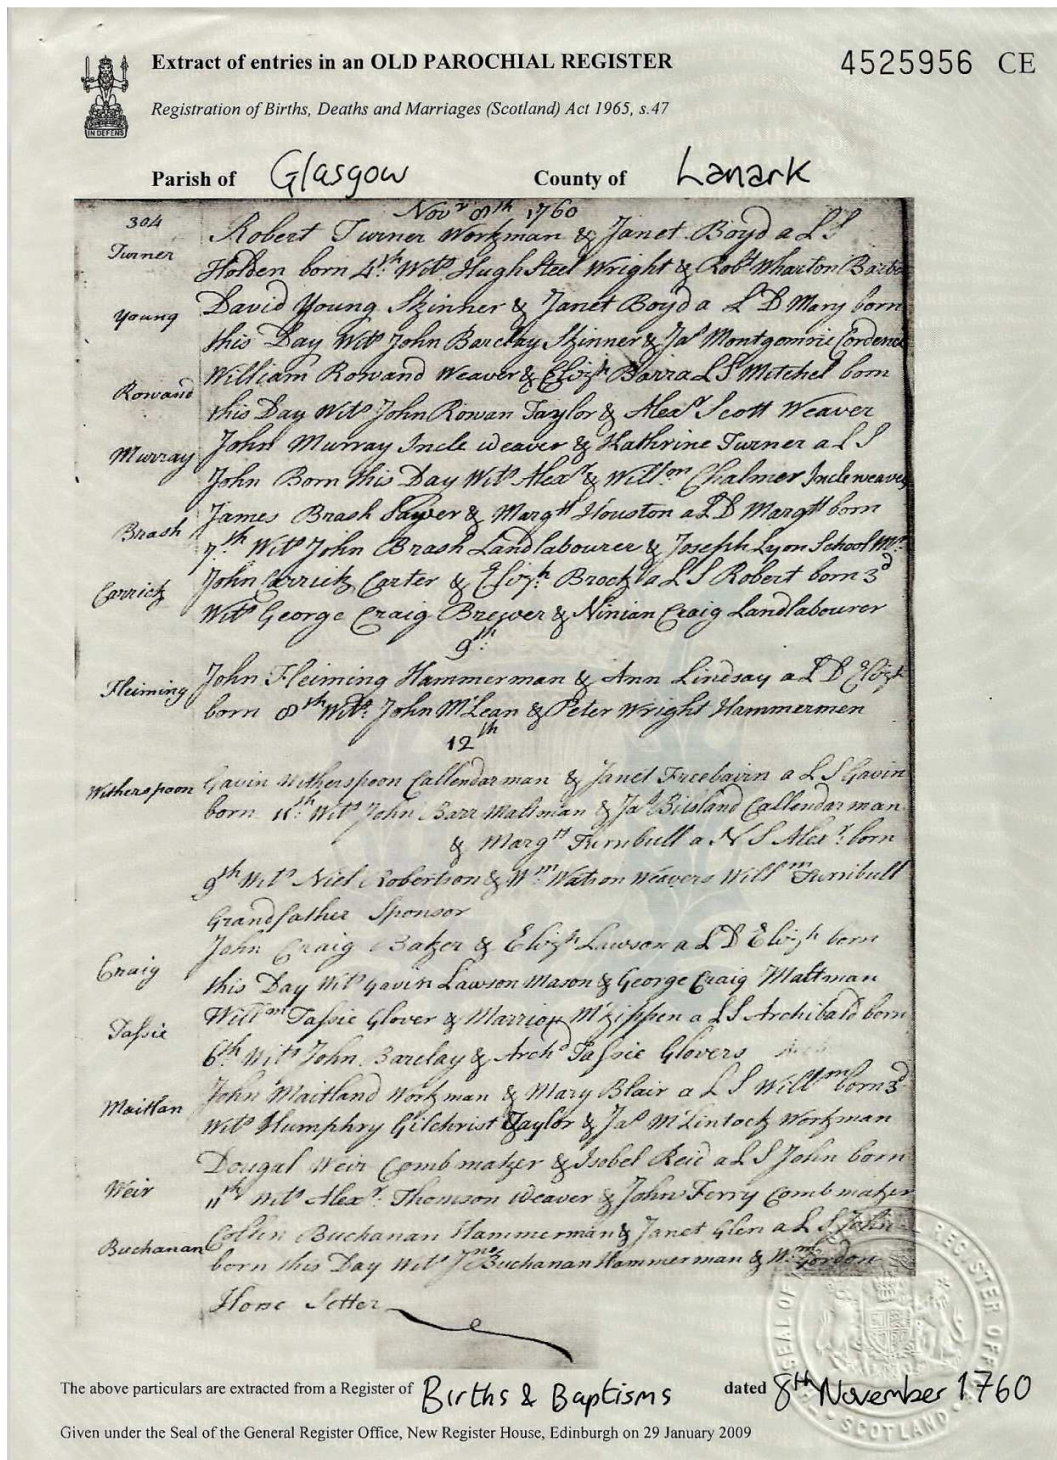 Extract of entries in an OLD PAROCHIAL REGISTER
4525956 CE
Registration of Births, Deaths and Marriages (Scotland) Act 1965, s.47
IN DEFENS
Parish of Glasgow County of Lanark
304
Novr 8th 1760
Turner
Robert Turner Workman & Janet Boyd a L S
Holden born 4th Wits Hugh Steel Wright & Robt Wharton Barber
Young
David Young Skinner & Janet Boyd a L D Mary born
this Day Wits John Barclay Skinner & Jas Montgomrie Cordener
Rowand
William Rowand Weaver & Elizh Barr a L S Mitchel born
this Day Wits John Rowan Taylor & Alexr Scott Weaver
Murray
John Murray Incle weaver & Kathrine Turner a L S
John Born this Day Wits Alexr & Willm Chalmer Incleweavers
Brash
James Brash Sawer & Margtt Houston a L D Margtt born
7th Wits John Brash Landlabourer & Joseph Lyon School Mr
Carrick
John Carrick Carter & Elizh Brock a L S Robert born 3d
Wits George Craig Brewer & Ninian Craig Landlabourer
9th
Fleiming
John Fleiming Hammerman & Ann Lindsay a L D Elizh
born 8th Wits John McLean & Peter Wright Hammermen
12th
Witherspoon
Gavin Witherspoon Callendarman & Janet Freebairn a L S Gavin
born 11th Wits John Barr Maltman & Jas Bilsland Callendarman
& Margtt Turnbull a N S Alexr born
9th Wits Niel Robertson & Wm Watson Weavers Willm Turnbull
Grandfather Sponsor
Craig
John Craig Baker & Elizh Lawson a L D Elizh born
this Day Wits Gavin Lawson Mason & George Craig Maltman
Tassie
Willm Tassie Glover & Marrion a L S Archibald born
6th Wits John Barclay & Archd Tassie Glovers
Maitlan
John Maitland Workman & Mary Blair a L S Willm born 3d
Wits Humphry Gilchrist Taylor & Jas McLintock Workman
Weir
Dougal Weir Combmaker & Isobel Reid a L S John born
11th Wits Alexr Thomson Weaver & John Ferry Combmaker
Buchanan
Collin Buchanan Hammerman & Janet Glen a L S John
born this Day Wits Jno Buchanan Hammerman & Wm Gordon
Horse Setter
The above particulars are extracted from a Register of Births & Baptisms dated 8th November 1760
Given under the Seal of the General Register Office, New Register House, Edinburgh on 29 January 2009
SEAL OF REGISTER OFFICE SCOTLAND